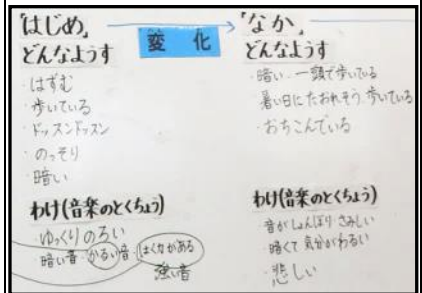 「はじめ」
どんなようす
・はずむ
・歩いている
・ドッスンドッスン
・のっそり
・暗い
わけ(音楽のとくちょう)
・ゆっくりのろい
・暗い音・かるい音・はく力がある
強い音
変化
「なか」
どんなようす
・暗い 一頭で歩いている
暑い日にたおれそう 歩いている
・おちこんでいる
わけ(音楽のとくちょう)
・音がしょんぼり さみしい
・暗くて 気分がわるい
・悲しい